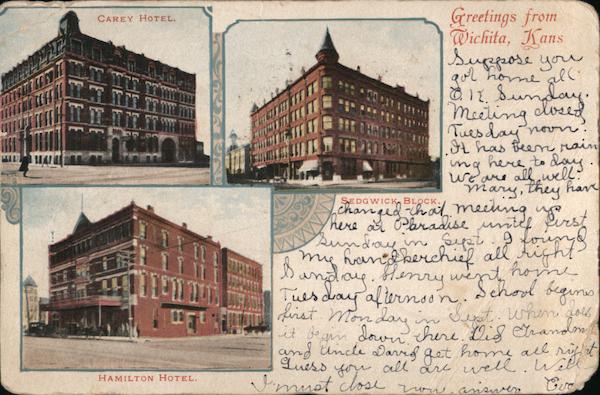 CAREY HOTEL.
Greetings from
Wichita, Kans
Suppose you
got home all
O.K. Sunday.
Meeting closed
Tuesday noon.
It has been rain
ing here to day.
We are all well.
Mary, they have
SEDGWICK BLOCK.
changed that meeting up
here at Paradise until first
Sunday in Sept. I found
my handkerchief all right
Sunday. Henry went home
Tuesday afternoon. School begins
first Monday in Sept. When does
it begin down there. Did Grandma
and Uncle David get home all right
Guess you all are well. Will
I must close now, answer
HAMILTON HOTEL.